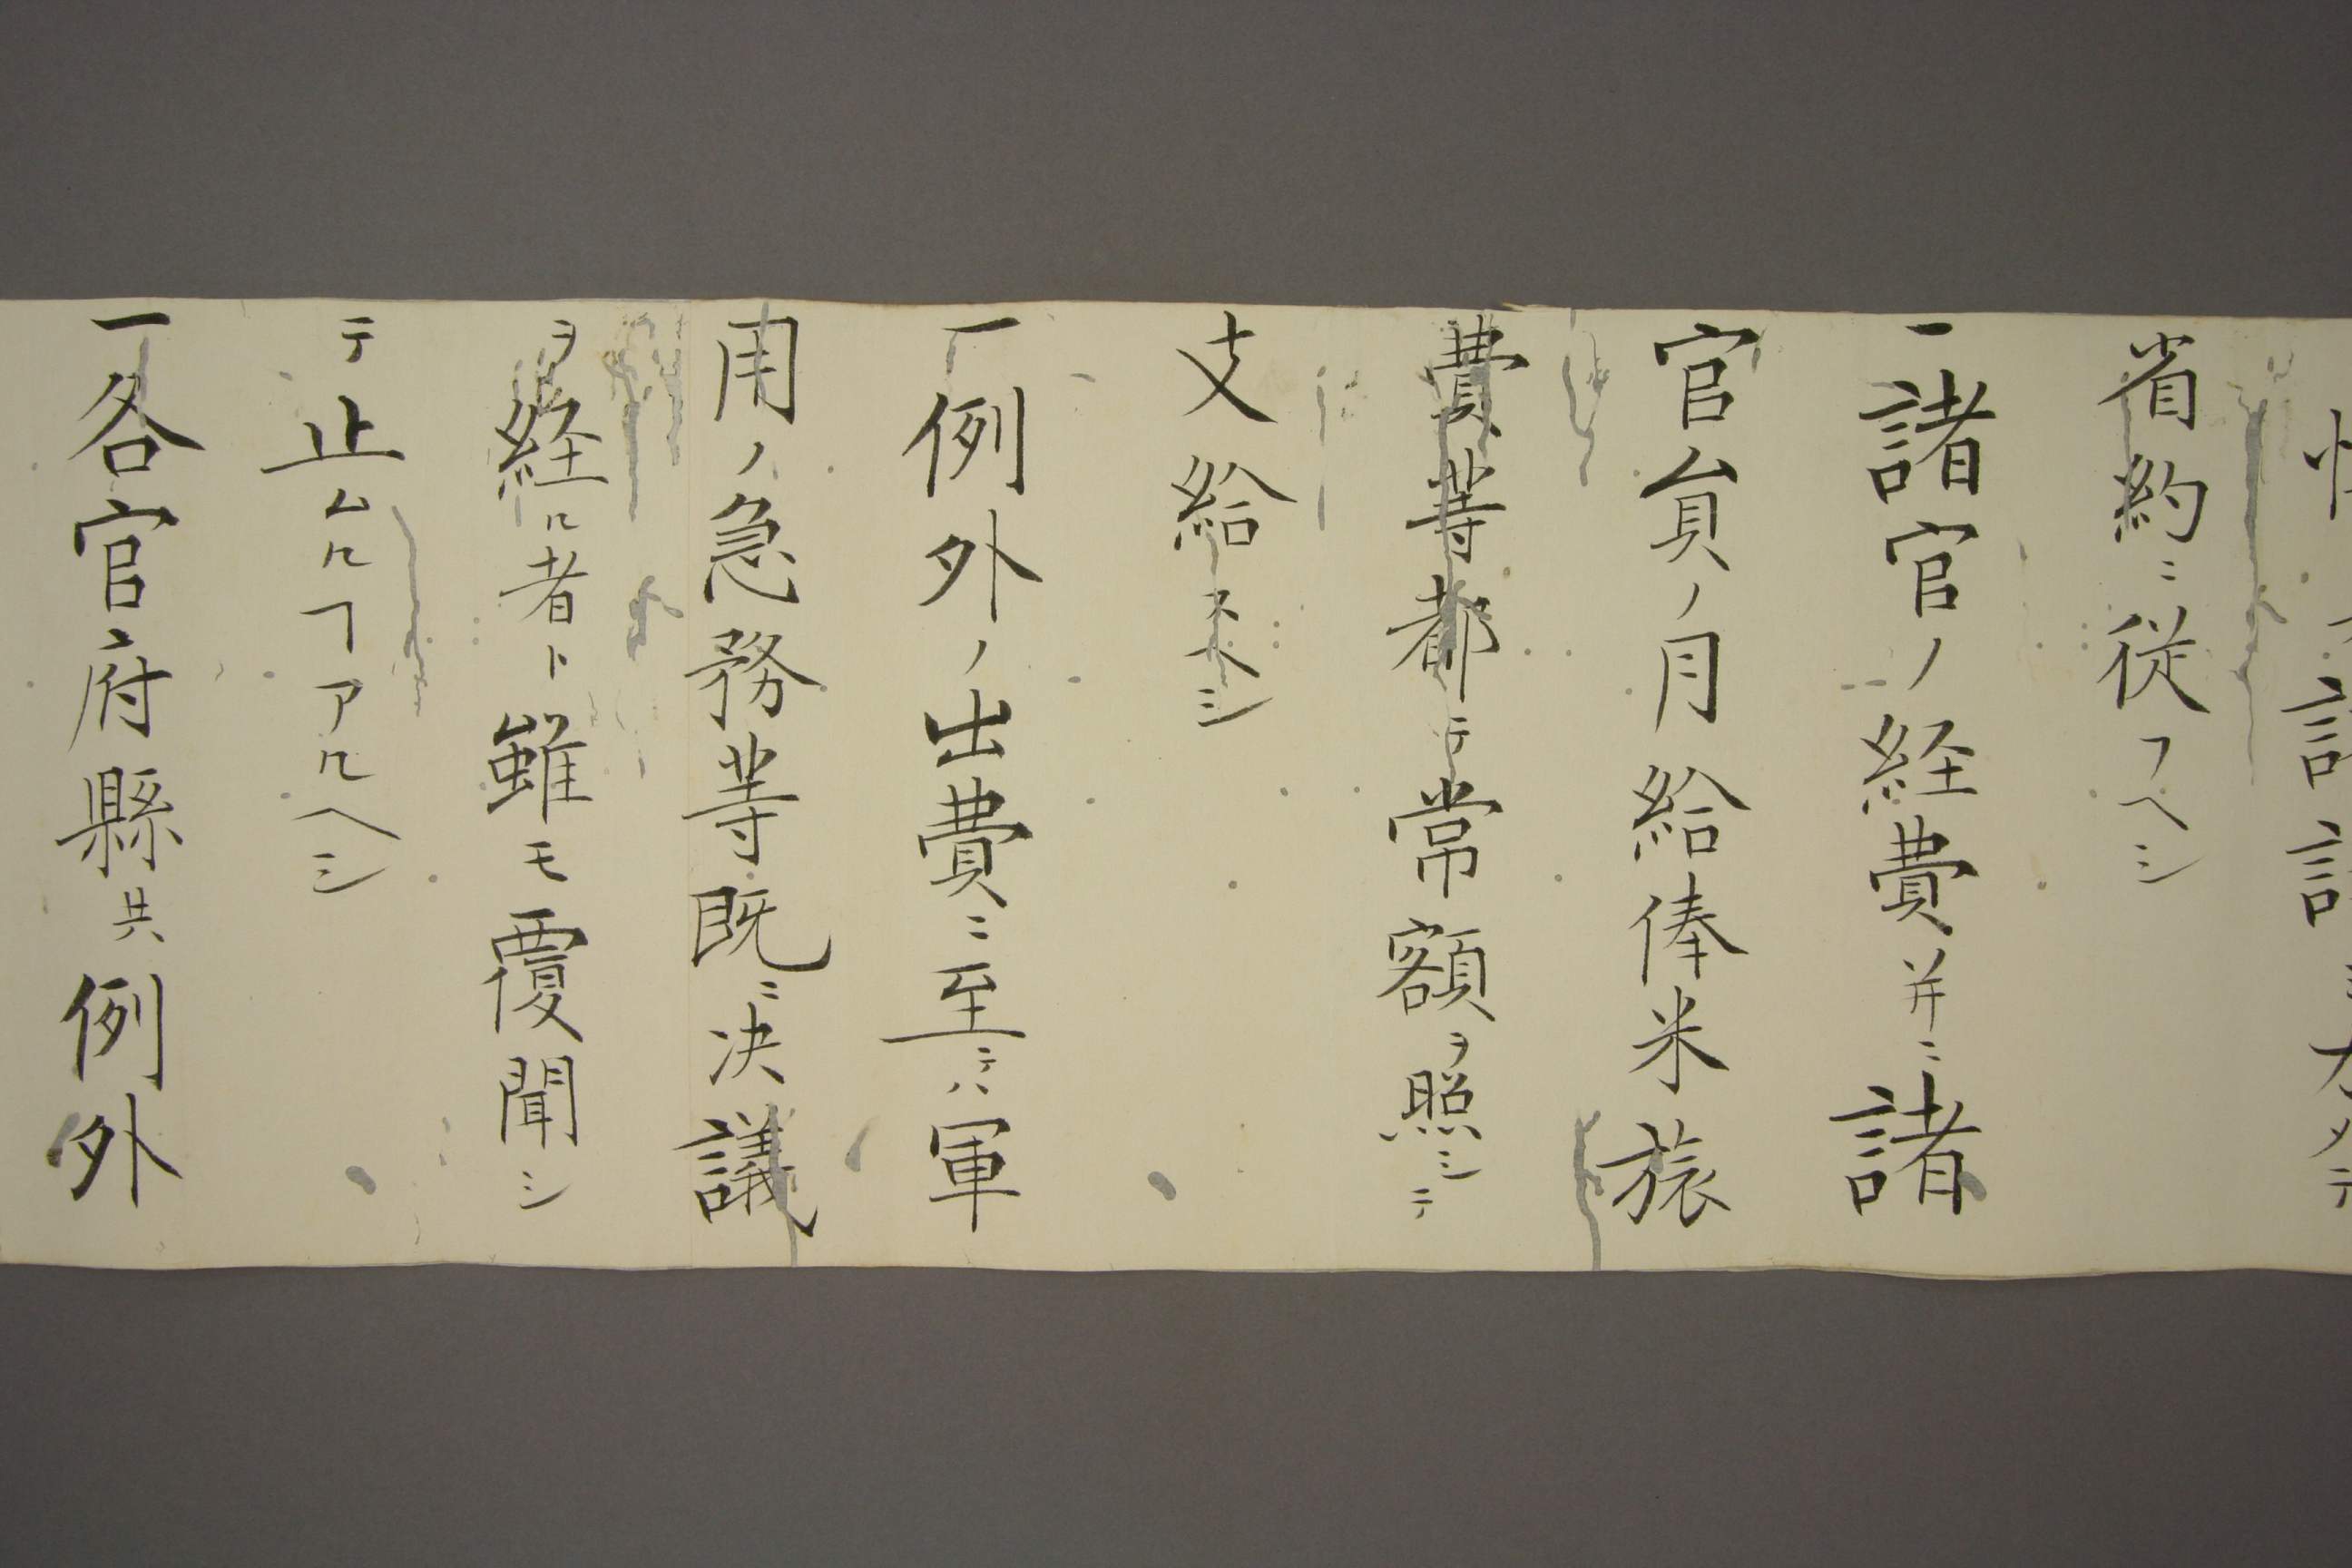 省約ニ従フヘシ
一諸官ノ経費并ニ諸
官員ノ月給俸米旅
費等都テ常額ヲ照シテ
支給スヘシ
一例外ノ出費ニ至テハ軍
用ノ急務等既ニ决議
ヲ経ル者ト雖モ覆聞シ
テ止ムルヿアルヘシ
一各官府縣共例外